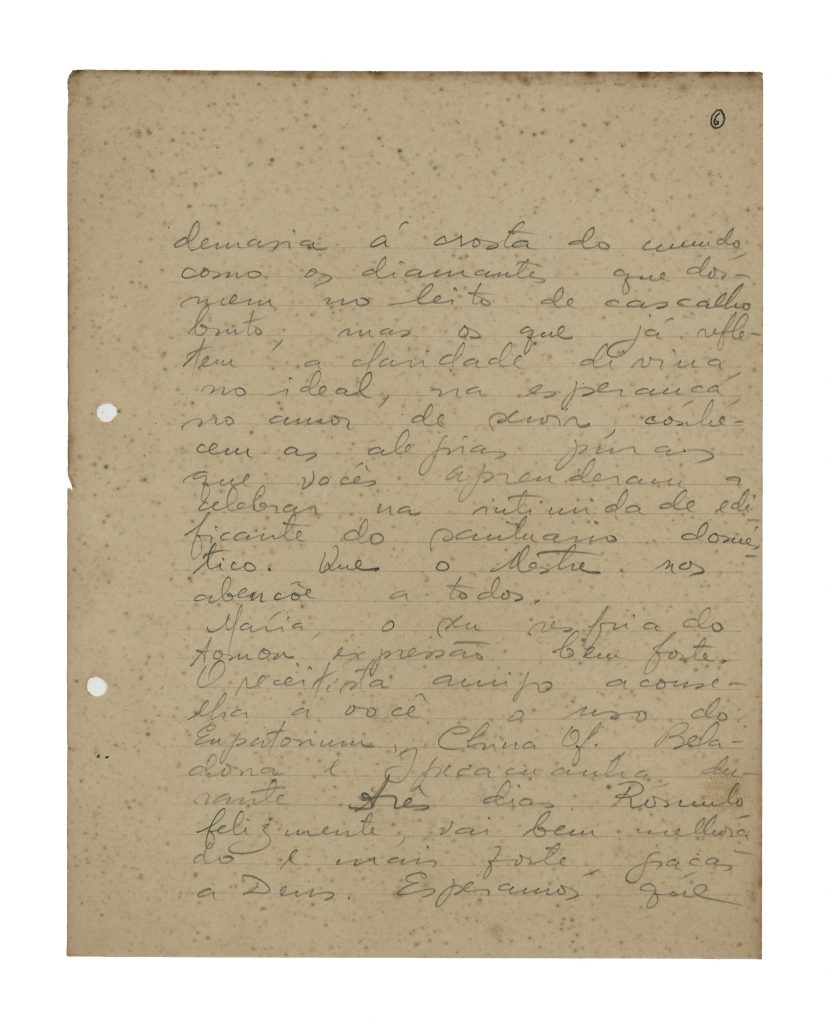 6
demasia á crosta do mundo,
como os diamantes que dor-
mem no leito de cascalho
bruto, mas os que já refle-
tem a claridade divina,
no ideal, na esperança,
no amor de servir, conhe-
cem as alegrias puras
que vocês aprenderam a
celebrar na intimidade edi-
ficante do santuario domés-
tico. Que o Mestre nos
abençõe a todos.
Maria, o seu resfriado
tomou expressão bem forte.
O receitista amigo aconse-
lha a você o uso do
Eupatorium, China Of., Bela-
dona e Ipecacuanha du-
rante três dias. Rômulo
felizmente, vai bem melhora-
do e mais forte, graças
a Deus. Esperamos que